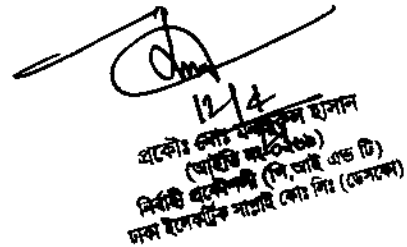 12/4
প্রকৌঃ মোঃ হাসান
(আইডি নং
নির্বাহী প্রকৌশলী (পি,আই এন্ড টি)
ঢাকা ইলেকট্রিক সাপ্লাই কোঃ লিঃ (ডেসকো)